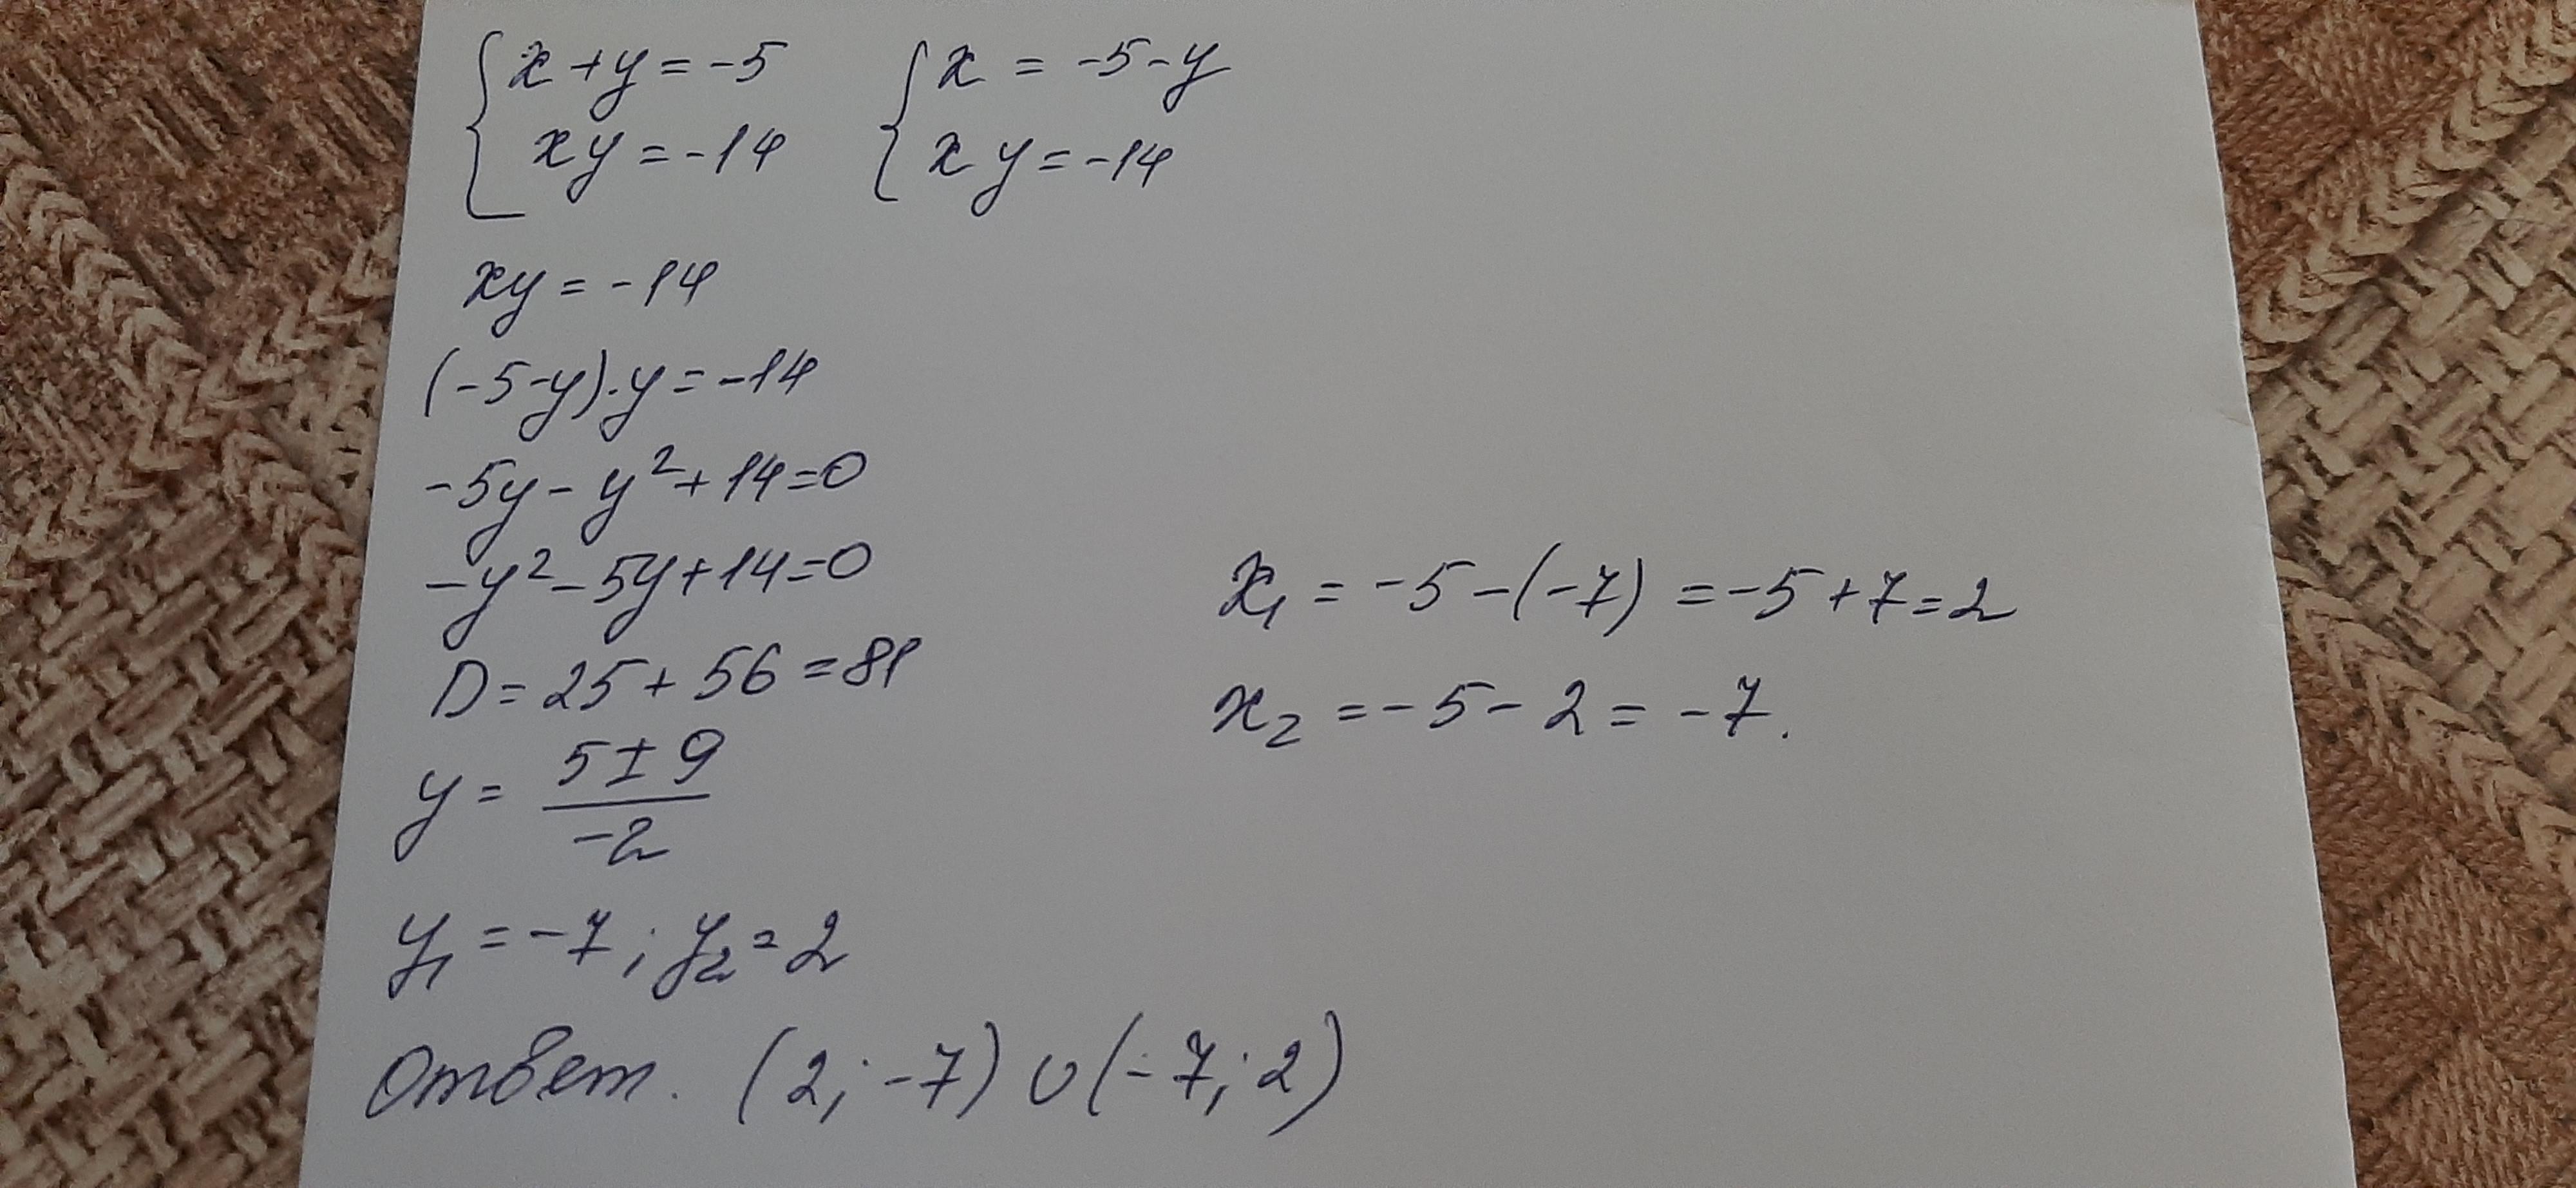 {x+y=-5   {x = -5-y
xy=-14   xy=-14
xy=-14
(-5-y)·y=-14
-5y-y²+14=0
-y²-5y+14=0
D=25+56=81
y = (5±9)/(-2)
y₁=-7; y₂=2
x₁ = -5-(-7) = -5+7=2
x₂ = -5-2 = -7.
Ответ. (2;-7)∪(-7;2)